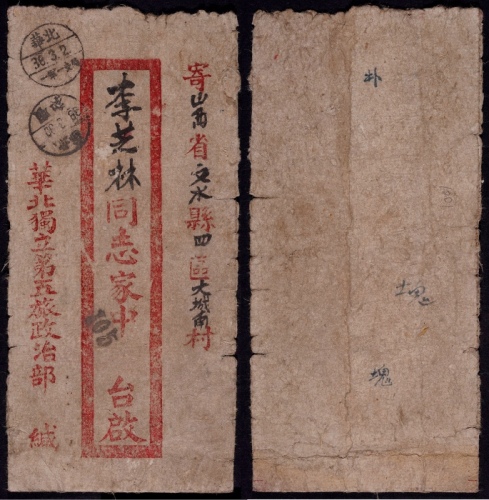 寄山西省文水縣四區大城南村
李芝林同志家中 台啟
華北獨立第五旅政治部 緘
華北
38.3.2
505
塊